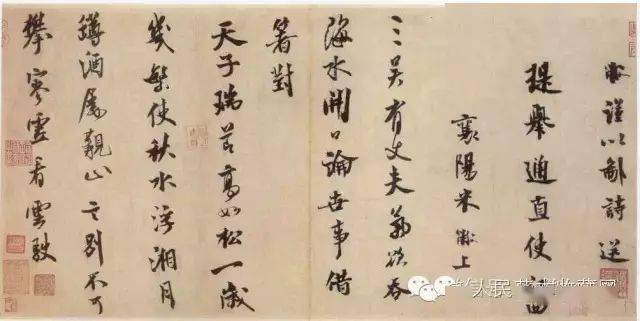 黻谨以鄙詩送
提舉通直使江西
襄陽米黻上
三吴有丈夫氣欲吞
海水開口論世事借
箸對
天子瑞节高如松一歲
幾繁使秋水浮湘月
罇酒屬親山言别不可
攀寒雲看雲駛